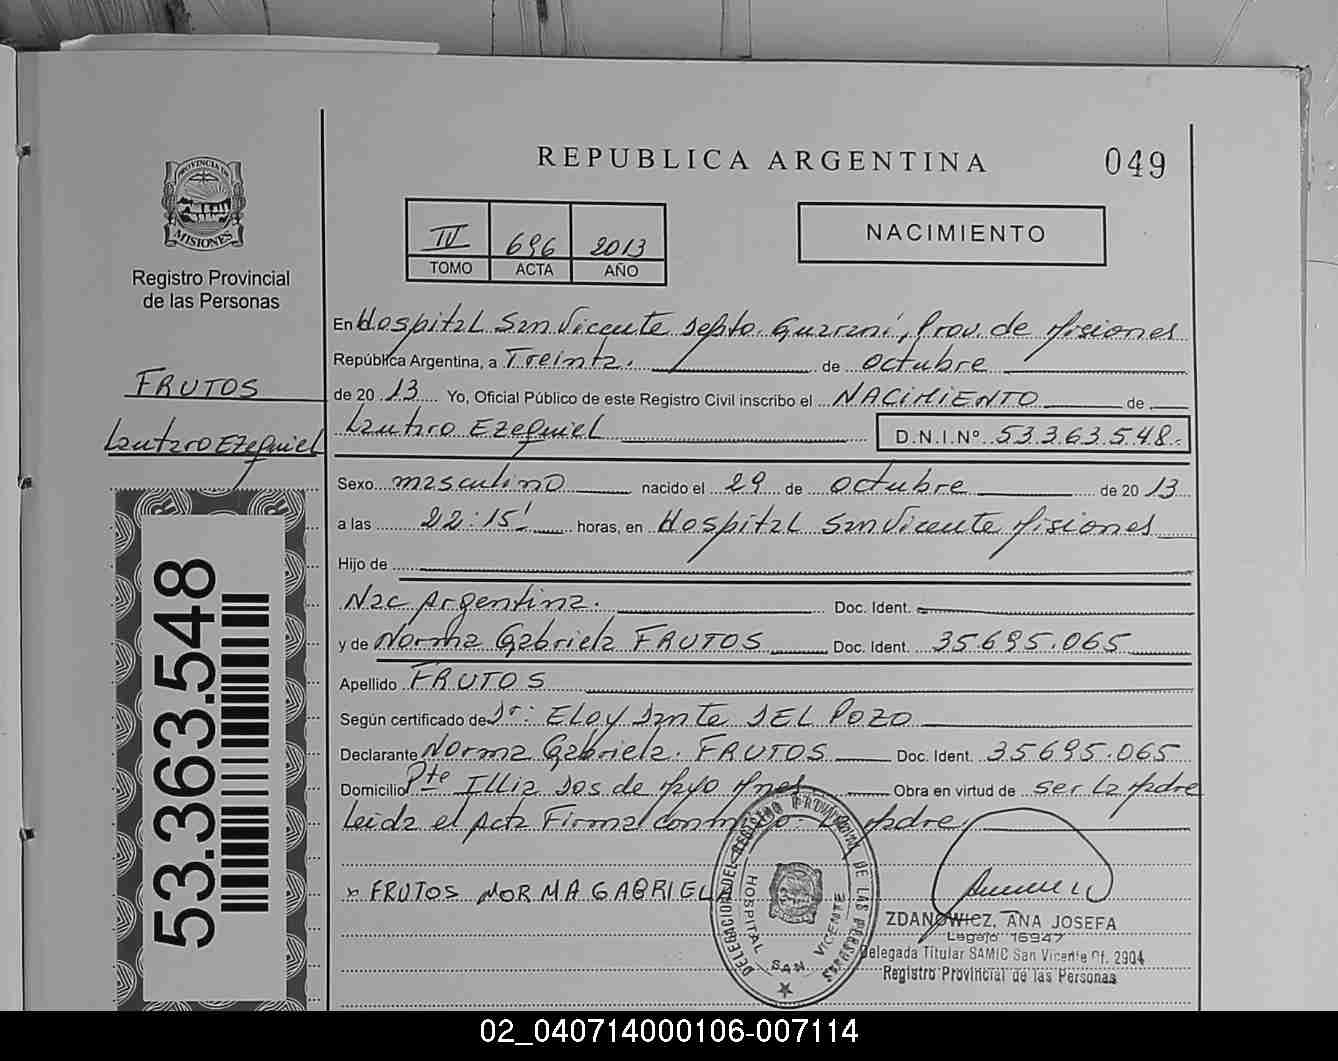 REPUBLICA ARGENTINA
049
PROVINCIA DE
MISIONES
Registro Provincial
de las Personas
IV 696 2013
TOMO ACTA AÑO
NACIMIENTO
FRUTOS
Lautaro Ezequiel
53.363.548
En Hospital San Vicente Depto. Guaraní, Prov. de Misiones
República Argentina, a Treinta. de octubre
de 20 13 Yo, Oficial Público de este Registro Civil inscribo el NACIMIENTO de
Lautaro Ezequiel D.N.I.Nº 53.363.548.
Sexo masculino nacido el 29 de octubre de 20 13
a las 22:15' horas, en Hospital San Vicente Misiones
Hijo de
Nac Argentina. Doc. Ident.
y de Norma Gabriela FRUTOS Doc. Ident. 35.695.065
Apellido FRUTOS
Según certificado de Dr: Eloy Dante DEL POZO
Declarante Norma Gabriela. FRUTOS Doc. Ident. 35695.065
Domicilio Pte Illia Dos de Mayo Mnes Obra en virtud de ser La Madre
Leida el Acta Firma conmigo La Madre
x FRUTOS NORMA GABRIELA
DELEGACION DEL REGISTRO PROVINCIAL DE LAS PERSONAS
HOSPITAL SAN VICENTE
ZDANOWICZ, ANA JOSEFA
Legajo 16947
Delegada Titular SAMIC San Vicente Of. 2904
Registro Provincial de las Personas
02_040714000106-007114